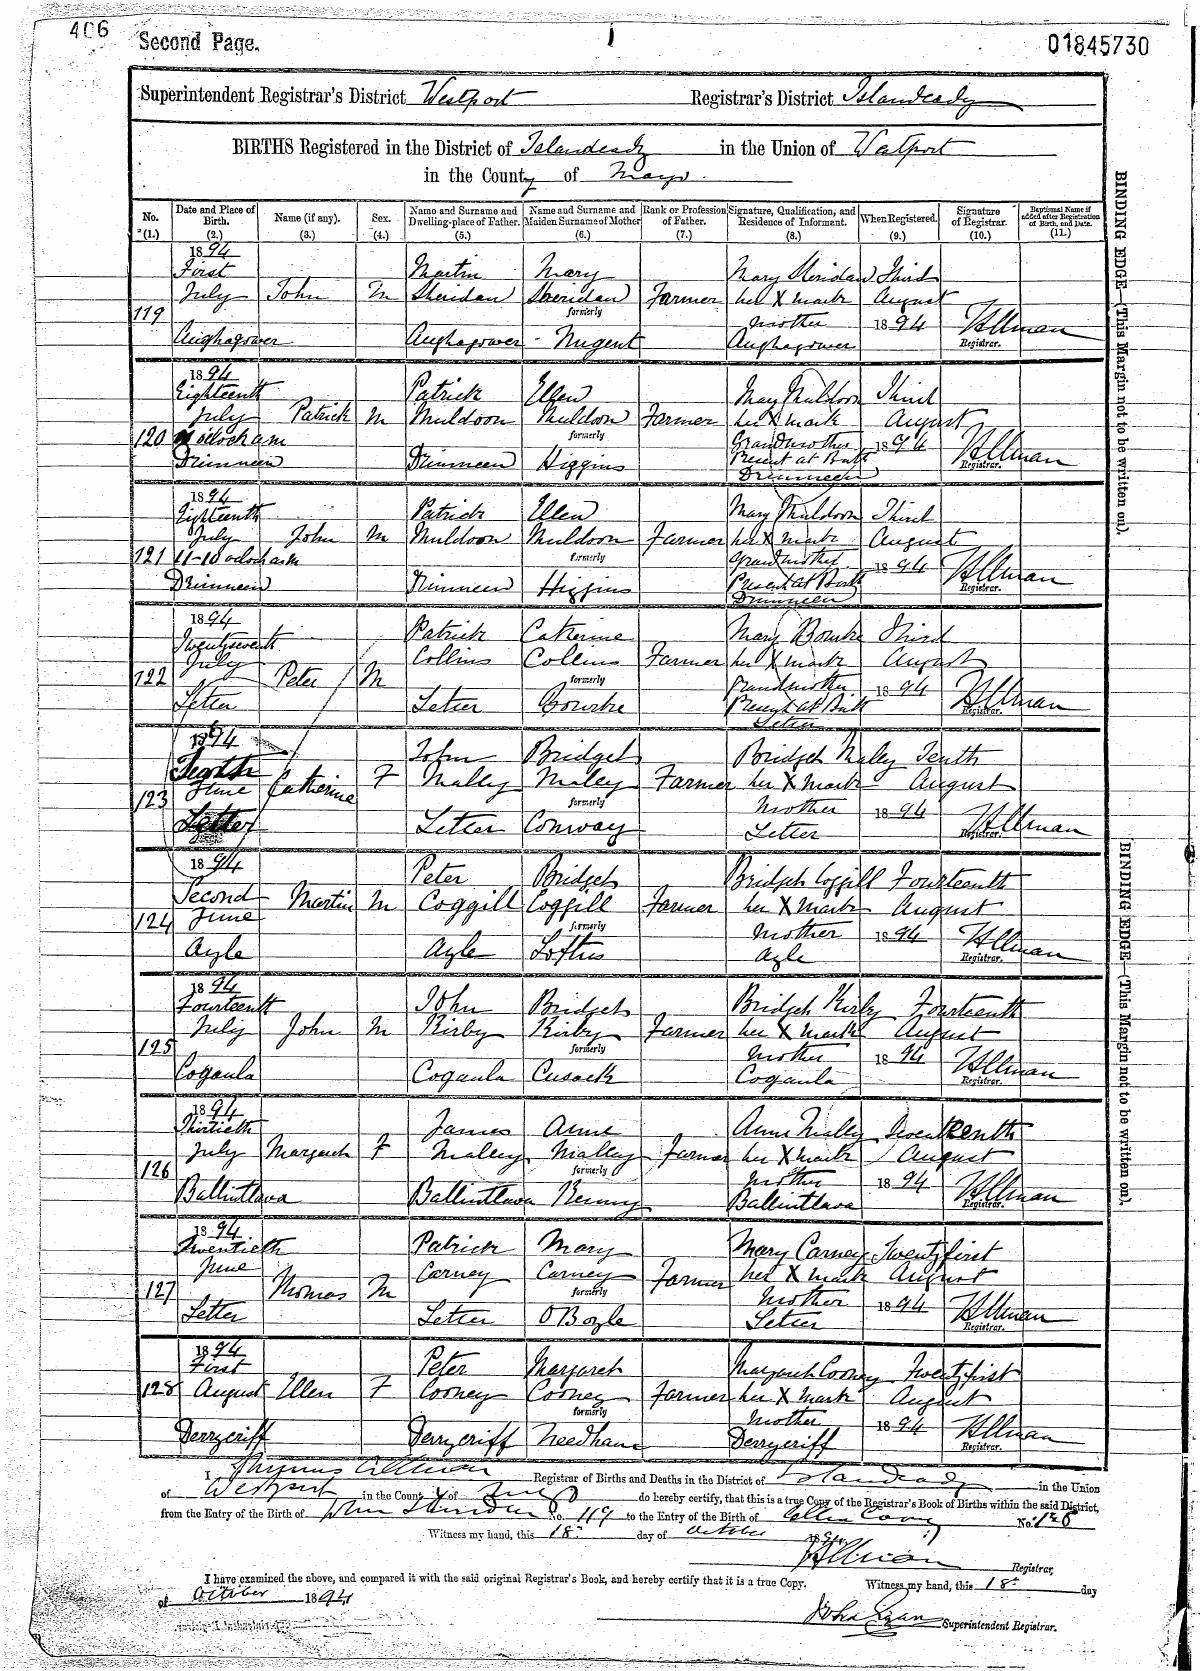 406
Second Page.
01845730
Superintendent Registrar's District Westport Registrar's District Islandeady
BIRTHS Registered in the District of Islandeady in the Union of Westport
in the County of Mayo.
No. (1.) Date and Place of Birth. (2.) Name (if any). (3.) Sex. (4.) Name and Surname and Dwelling-place of Father. (5.) Name and Surname and Maiden Surname of Mother (6.) Rank or Profession of Father. (7.) Signature, Qualification, and Residence of Informant. (8.) When Registered. (9.) Signature of Registrar. (10.) Baptismal Name if added after Registration of Birth, and Date. (11.)
1894
First Martin Mary Mary Sheridan Third
July John M Sheridan Sheridan Farmer her X mark August
119 formerly mother 1894 Allman
Aughagower Aughagower Nugent Aughagower Registrar.
1894
Eighteenth Patrick Ellen Mary Muldoon Third
July Patrick M Muldoon Muldoon Farmer her X mark August
120 oclock am formerly Grandmother 1894 Allman
Drimneen Drimneen Higgins Present at Birth Registrar.
Drimneen
1894
Eighteenth Patrick Ellen Mary Muldoon Third
July John M Muldoon Muldoon Farmer her X mark August
121 11-10 oclock am formerly Grandmother 1894 Allman
Drimneen Drimneen Higgins Present at Birth Registrar.
Drimneen
1894
Twentyseventh Patrick Catherine Mary Bourke Third
July Collins Collins Farmer her X mark August
122 Peter M formerly Grandmother 1894 Allman
Letter Letter Bourke Present at Birth Registrar.
Letter
1894
John Bridget Bridget Maley Tenth
June Catherine F Mally Maley Farmer her X mark August
123 formerly Mother 1894 Allman
Letter Letter Conway Letter Registrar.
1894
Second Peter Bridget Bridget Coggill Fourteenth
June Martin M Coggill Coggill Farmer her X mark August
124 formerly Mother 1894 Allman
Ayle Ayle Loftus Ayle Registrar.
1894
Fourteenth John Bridget Bridget Kirby Fourteenth
July John M Kirby Kirby Farmer her X mark August
125 formerly Mother 1894 Allman
Cogaula Cogaula Cusack Cogaula Registrar.
1894
Thirtieth James Anne Anne Mally Seventeenth
July Margaret F Maley Malley Farmer her X mark August
126 formerly Mother 1894 Allman
Ballintlava Ballintlava Kenny Ballintlava Registrar.
1894
Twentieth Patrick Mary Mary Carney Twentyfirst
June Carney Carney Farmer her X mark August
127 Thomas M formerly Mother 1894 Allman
Letter Letter O Boyle Letter Registrar.
1894
First Peter Margaret Margaret Cooney Twentyfirst
128 August Ellen F Cooney Cooney Farmer her X mark August
formerly Mother 1894 Allman
Derrycriff Derrycriff Needham Derrycriff Registrar.
I Allman Registrar of Births and Deaths in the District of Islandeady in the Union
of Westport in the County of Mayo do hereby certify, that this is a true Copy of the Registrar's Book of Births within the said District,
from the Entry of the Birth of John Sheridan No. 119 to the Entry of the Birth of Ellen Cooney No. 128
Witness my hand, this 18th day of October 1894
Allman Registrar,
I have examined the above, and compared it with the said original Registrar's Book, and hereby certify that it is a true Copy. Witness my hand, this 18th day
of October 1894
Superintendent Registrar.
BINDING EDGE—(This Margin not to be written on).
BINDING EDGE—(This Margin not to be written on).